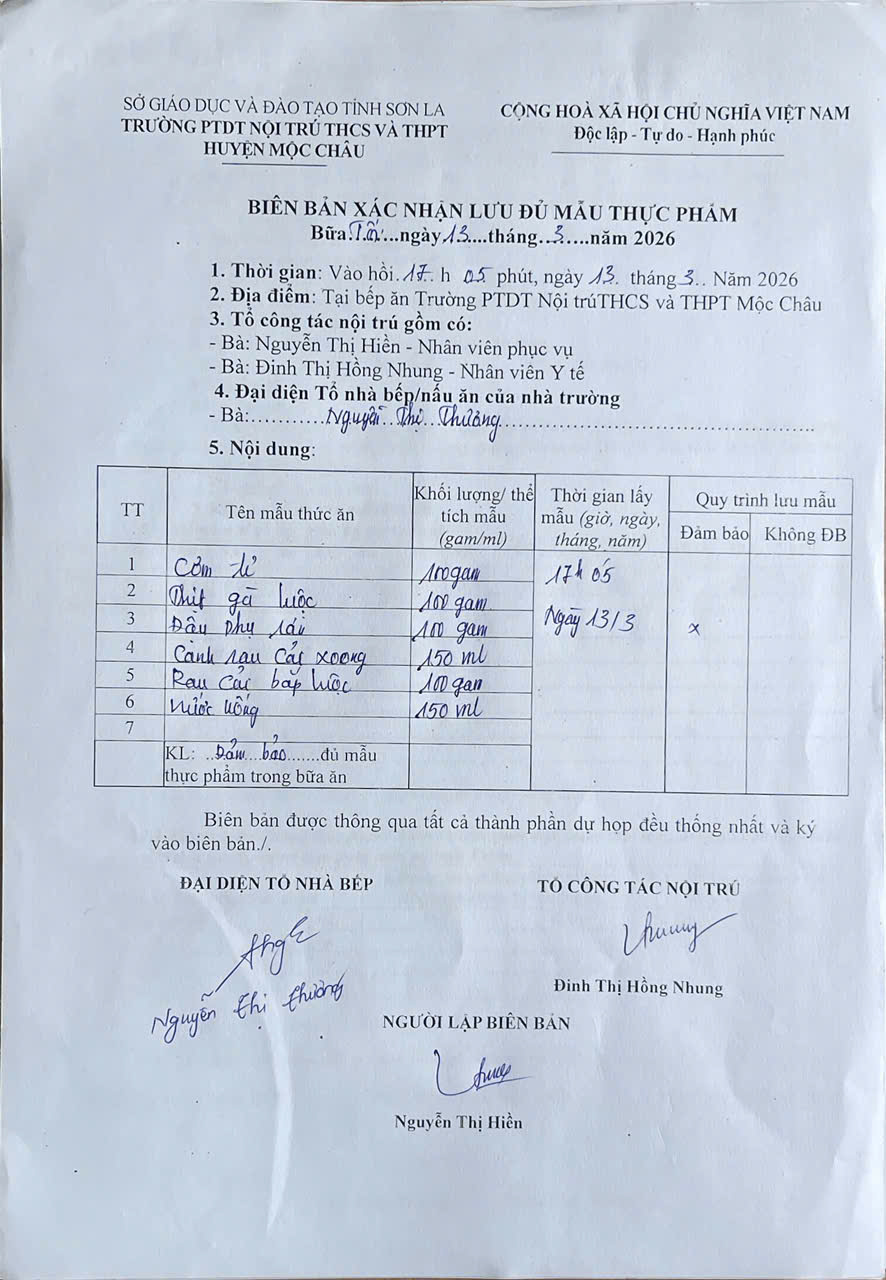 SỞ GIÁO DỤC VÀ ĐÀO TẠO TỈNH SƠN LA
TRƯỜNG PTDT NỘI TRÚ THCS VÀ THPT
HUYỆN MỘC CHÂU
CỘNG HOÀ XÃ HỘI CHỦ NGHĨA VIỆT NAM
Độc lập - Tự do - Hạnh phúc
BIÊN BẢN XÁC NHẬN LƯU ĐỦ MẪU THỰC PHẨM
Bữa Tối ngày 13 tháng 3 năm 2026
1. Thời gian: Vào hồi 17 h 05 phút, ngày 13 tháng 3 Năm 2026
2. Địa điểm: Tại bếp ăn Trường PTDT Nội trúTHCS và THPT Mộc Châu
3. Tổ công tác nội trú gồm có:
- Bà: Nguyễn Thị Hiền - Nhân viên phục vụ
- Bà: Đinh Thị Hồng Nhung - Nhân viên Y tế
4. Đại diện Tổ nhà bếp/nấu ăn của nhà trường
- Bà: Nguyễn Thị Thương
5. Nội dung:
TT Tên mẫu thức ăn Khối lượng/ thể tích mẫu (gam/ml) Thời gian lấy mẫu (giờ, ngày, tháng, năm) Quy trình lưu mẫu
Đảm bảo Không ĐB
1 Cơm tẻ 100gam 17h 05
2 Thịt gà luộc 100 gam
3 Đậu phụ rán 100 gam Ngày 13/3 x
4 Canh rau cải xoong 150 ml
5 Rau cải bắp luộc 100 gam
6 Nước uống 150 ml
7
KL: Đảm bảo đủ mẫu
thực phẩm trong bữa ăn
Biên bản được thông qua tất cả thành phần dự họp đều thống nhất và ký
vào biên bản./.
ĐẠI DIỆN TỔ NHÀ BẾP
TỔ CÔNG TÁC NỘI TRÚ
Nguyễn Thị Thương
Đinh Thị Hồng Nhung
NGƯỜI LẬP BIÊN BẢN
Nguyễn Thị Hiền